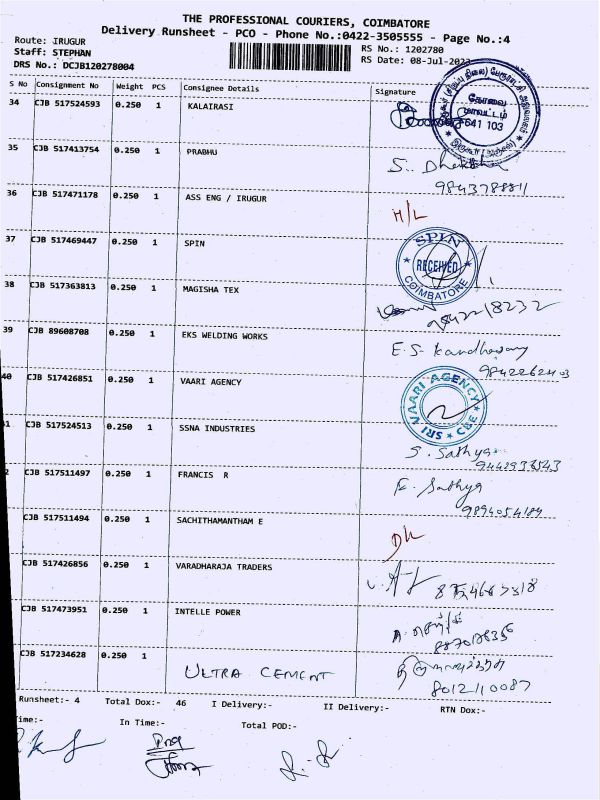 THE PROFESSIONAL COURIERS, COIMBATORE
Delivery Runsheet - PCO - Phone No.:0422-3505555 - Page No.:4
Route: IRUGUR
RS No.: 1202780
Staff: STEPHAN
RS Date: 08-Jul-2023
DRS No.: DCJB120278004
S No Consignment No Weight PCS Consignee Details Signature
34 CJB 517524593 0.250 1 KALAIRASI
கோவை
மாவட்டம்
641 103
35 CJB 517413754 0.250 1 PRABHU
S.
36 CJB 517471178 0.250 1 ASS ENG / IRUGUR H/L
37 CJB 517469447 0.250 1 SPIN
SPIN
RECEIVED
COIMBATORE
38 CJB 517363813 0.250 1 MAGISHA TEX
9842218232
39 CJB 89608708 0.250 1 EKS WELDING WORKS
E.S. Kandhasamy
40 CJB 517426851 0.250 1 VAARI AGENCY
SRI VAARI AGENCY
CBE
1 CJB 517524513 0.250 1 SSNA INDUSTRIES
S. Sathya
2 CJB 517511497 0.250 1 FRANCIS R
F. Sathya
9894054184
CJB 517511494 0.250 1 SACHITHAMANTHAM E
CJB 517426856 0.250 1 VARADHARAJA TRADERS
CJB 517473951 0.250 1 INTELLE POWER
CJB 517234628 0.250 1 ULTRA CEMENT
8012110087
Runsheet:- 4 Total Dox:- 46 I Delivery:- II Delivery:- RTN Dox:-
ime:- In Time:- Total POD:-